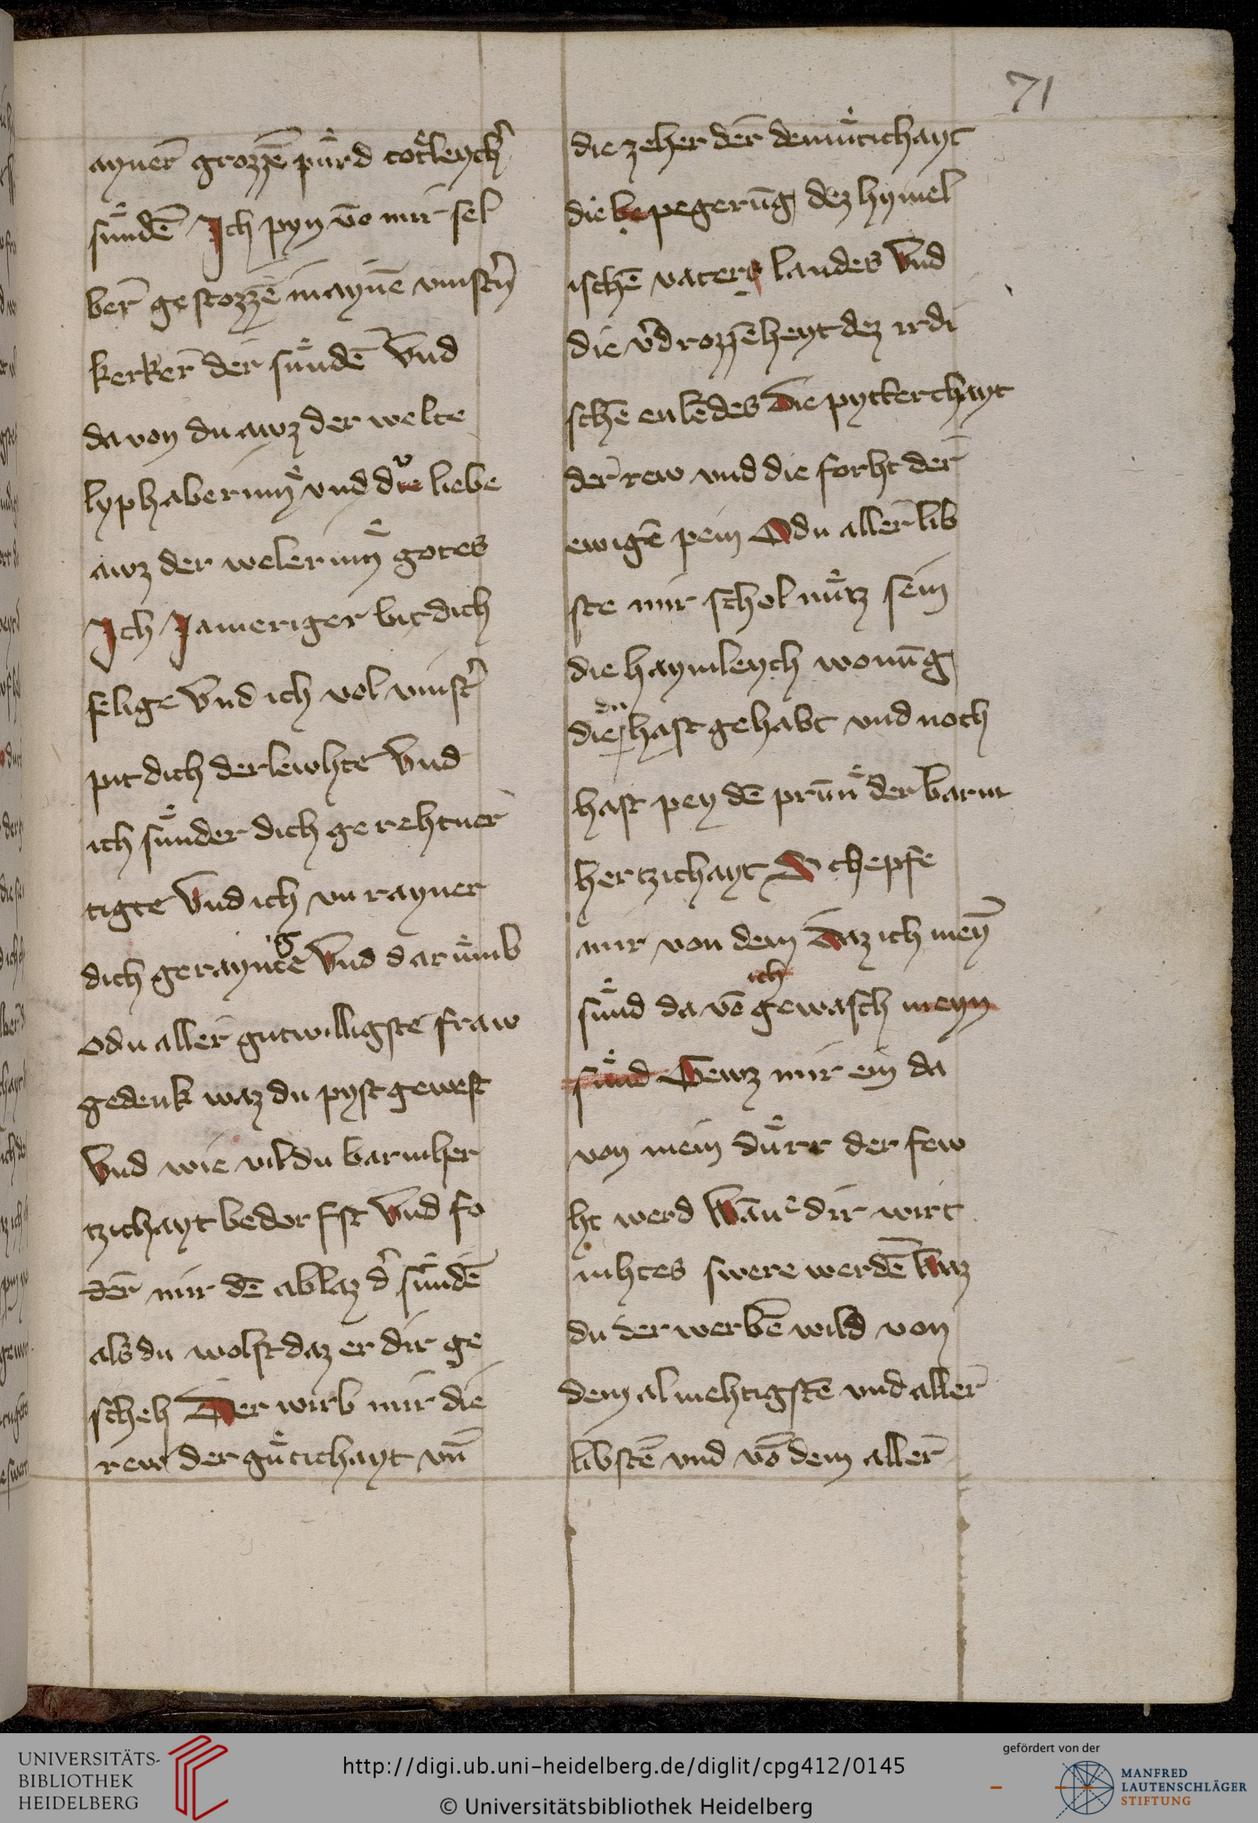 71
ayner̄ grozzē puͤrd totleych᷑
suͤndē Ich pyn vō mir sel
ber̄ gestozzē in aynē vinst᷑n
kerker̄ der suͤndē Vnd
da von du awz der welte
lyphaberinͤ vnd dͮe liebe
awz der welerinͤ gotes
Ich Jameriger bit dich
selige Vnd ich vol vinst᷑
pit dich derlewhte Vnd
ich suͤnder dich gerehtuer
tigte Vnd ich vnrayner
dich geraynte Vnd daruͤmb
o du aller̄ gutwilligste fraw
gedenk waz du pyst gewest
Vnd wie vil du barmher
tzichayt bedorfst Vnd fo
der̄ mir dē ablaz d᷑ suͤndē
als du wolst daz er dir ge
scheh Der wirb mir die
rew der guͤtichayt vn̄
die zeher der̄ demuͤtichayt
die be pegerūg dez hymel
ischē vaters landes Vnd
die v᷑drozzēheyt dez irdi
schē enlēdes Die pytterchayt
der̄ rew vnd die forht der̄
ewigē pein O du aller̄ lib
ste mir schol nuͤtz sein
die haymleych wonūg
die du hast gehabt vnd noch
hast pey dē prūnͤ der barm
hertzichayt Schepfe
mir von dem Daz ich mey̅
suͤnd da vō ich gewasch meyn
suͤnd Gewz mir ein da
von mein duͤrr der few
ht werd Wān᷑ dir wirt
nihtes swere werdē Waz
du der werbē wild von
dem almehtigstē vnd aller̄
libstē vnd vō dem aller̄
UNIVERSITÄTS-
BIBLIOTHEK
HEIDELBERG
http://digi.ub.uni-heidelberg.de/diglit/cpg412/0145
© Universitätsbibliothek Heidelberg
gefördert von der
MANFRED
LAUTENSCHLÄGER
STIFTUNG